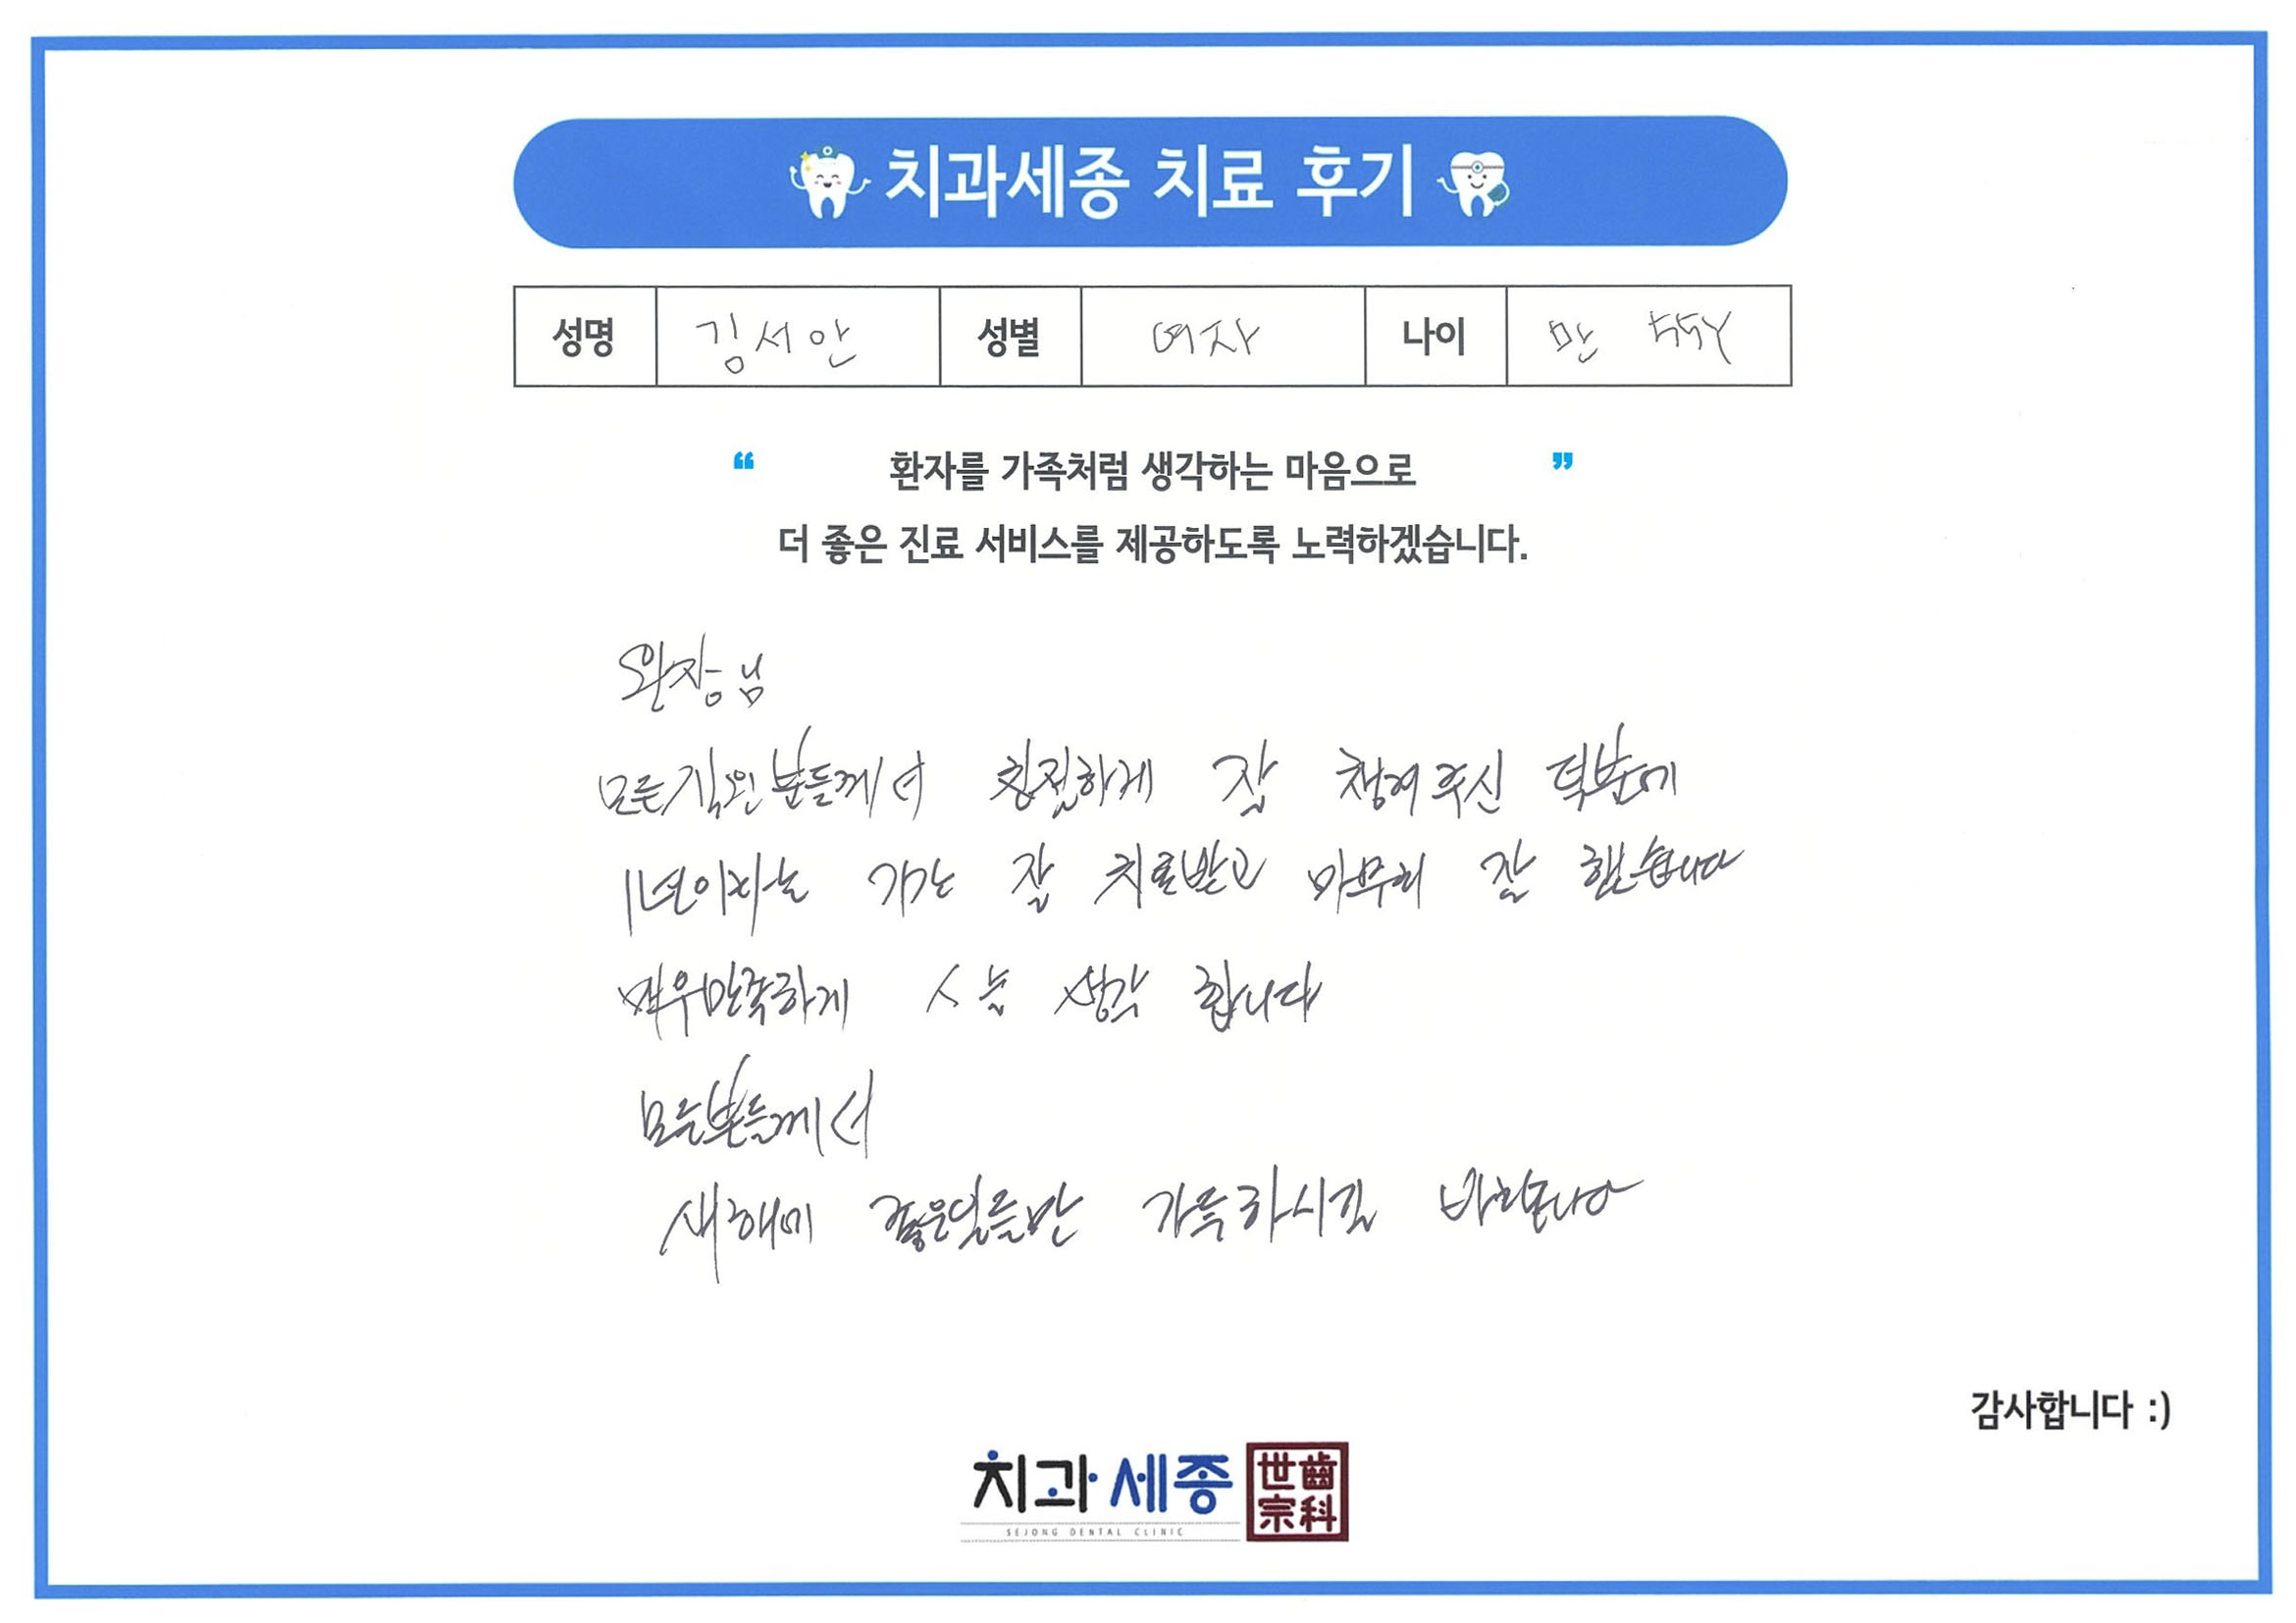 치과세종 치료 후기
성명 김서안 성별 여자 나이 만 55Y
“ 환자를 가족처럼 생각하는 마음으로 ”
더 좋은 진료 서비스를 제공하도록 노력하겠습니다.
원장님
모든직원분들께서 친절하게 잘 챙겨주신 덕분에
1년이라는 기간 잘 치료받고 마무리 잘 했습니다
매우만족하게 생각 합니다
모든분들께서
새해에 좋은일들만 가득하시길 바랍니다
감사합니다 :)
치과세종 世齒
宗科
SEJONG DENTAL CLINIC